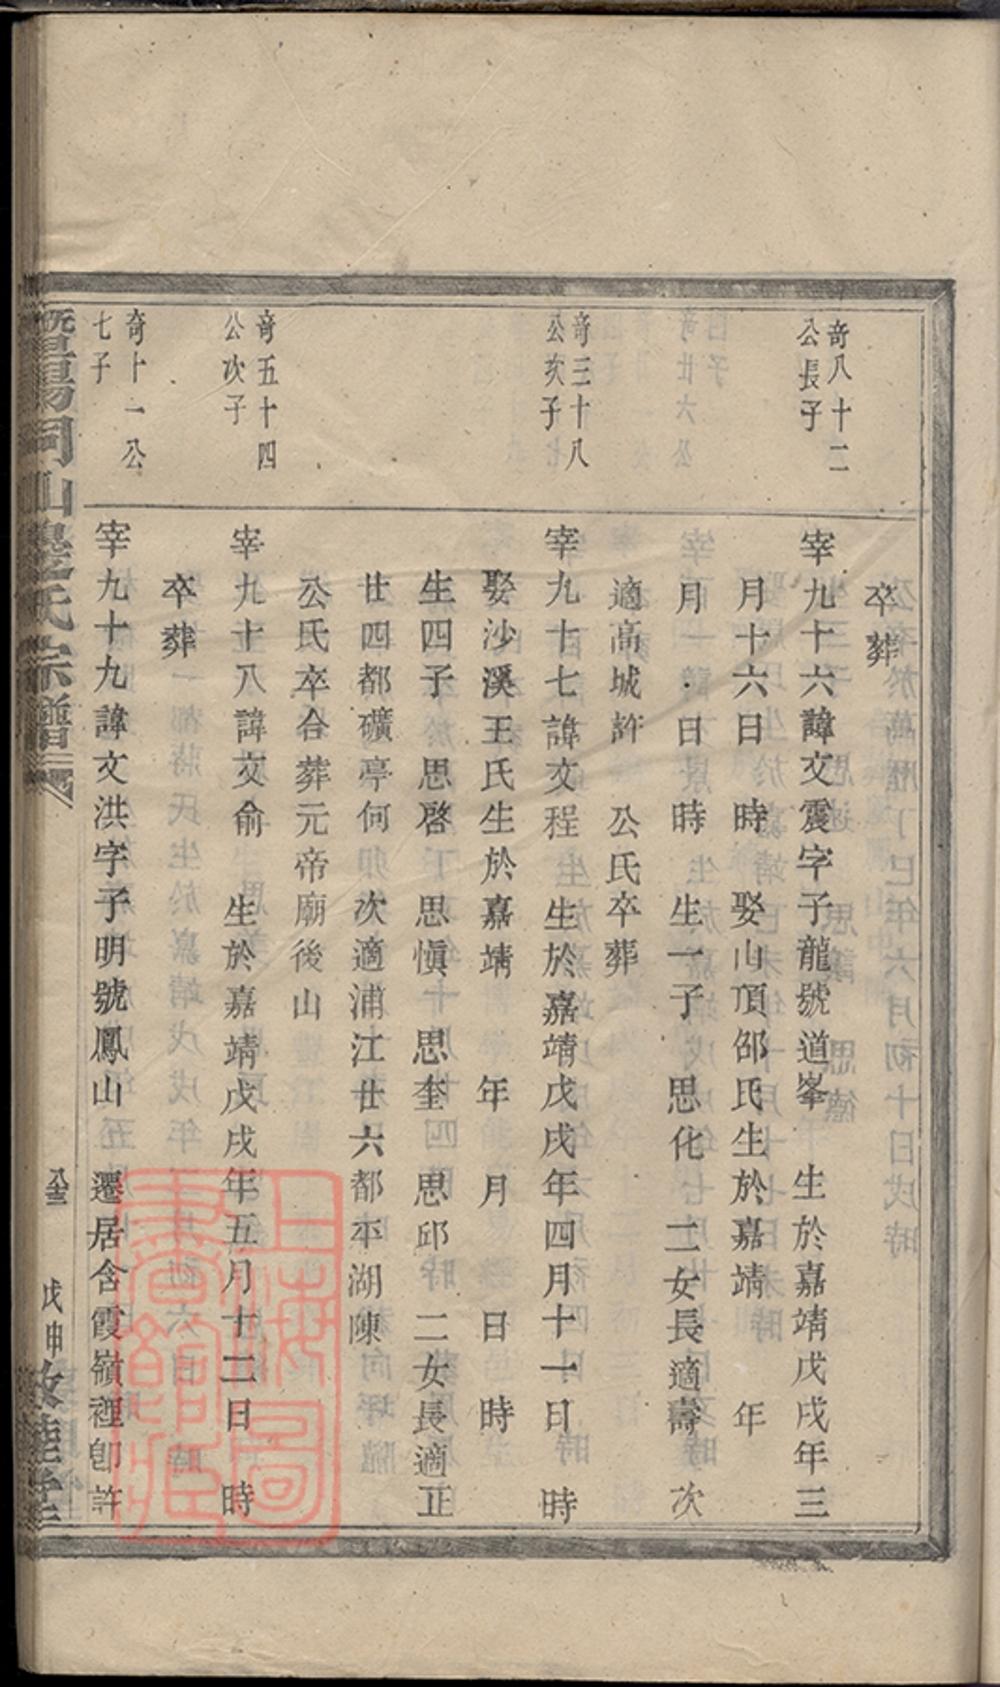 卒葬
奇八十二
公長子
宰九十六諱文震字子龍號道峯 生於嘉靖戊戌年三
月十六日 時 娶山頂邵氏生於嘉靖 年
月 日 時 生一子 思化 二女長適壽 次
適高城許 公氏卒葬
奇三十八
公次子
宰九十七諱文程 生於嘉靖戊戌年四月十一日 時
娶沙溪王氏生於嘉靖 年 月 日 時
生四子 思啓 思愼 思奎 思邱 二女長適正
廿四都礦亭何 次適浦江廿六都平湖陳
公氏卒合葬元帝廟後山
奇五十四
公次子
宰九十八諱文俞 生於嘉靖戊戌年五月十二日 時
卒葬
奇十一公
七子
宰九十九諱文洪字子明號鳳山 遷居含霞嶺裡卽許
暨陽同山邊氏宗譜
戊申敦睦堂
上海圖書館藏